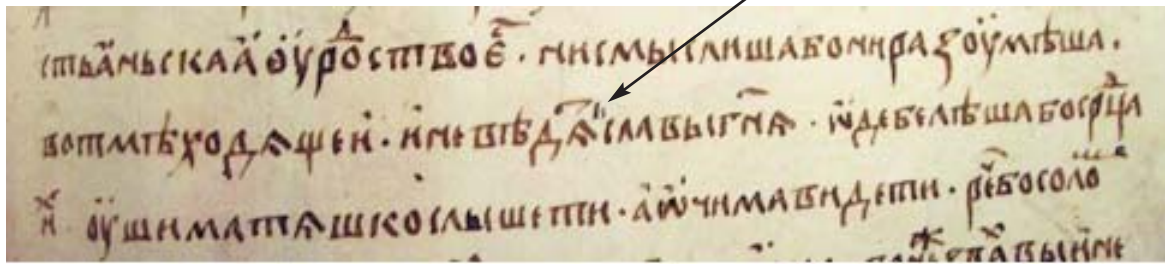 стьаньскаа оуроⷣство є҇ · нисмыслишабонираꙁоумѣша ·
вотмѣходѧщеи · иневѣдѧⷮславыгн҃ѧ · ѡдебелѣшабосрⷣца
иⷯ · оушиматѧшкослышети · аѡчимавидети · рє҇босоло